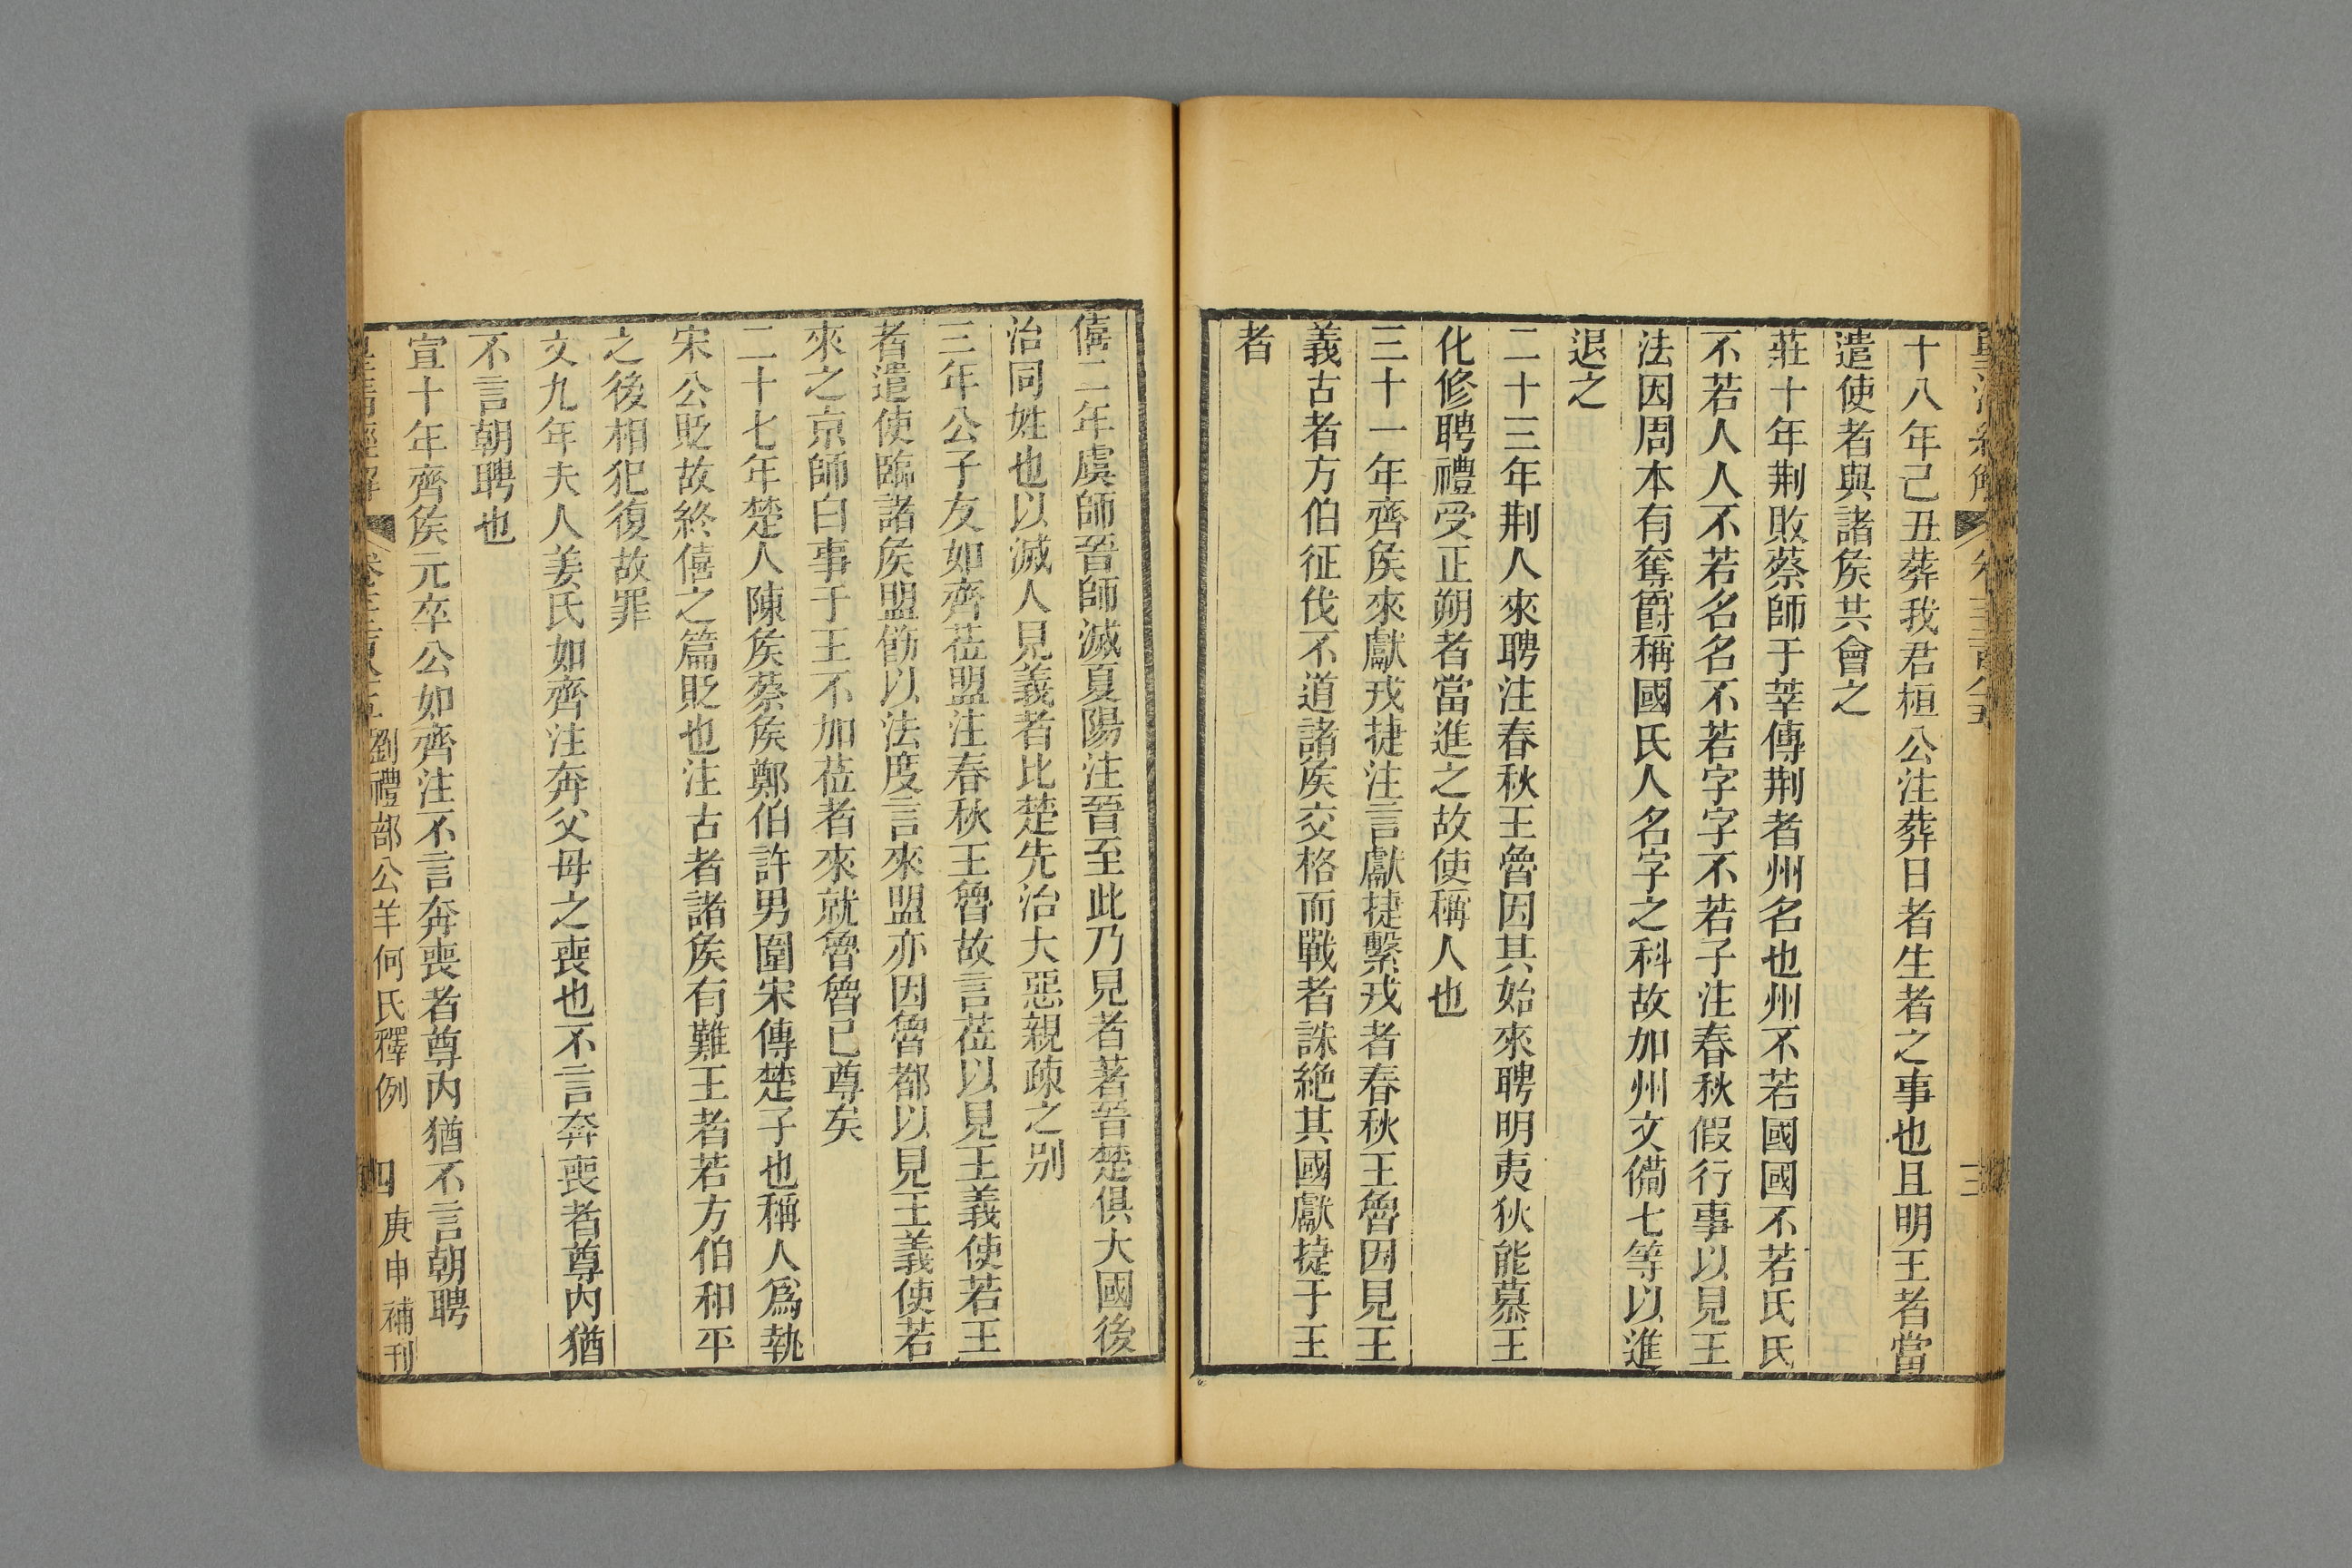 十八年己丑葬我君桓公注葬日者生者之事也且明王者當
遣使者與諸矦共會之
莊十年荆敗蔡師于莘傳荆者州名也州不若國國不若氏氏
不若人人不若名名不若字字不若子注春秋假行事以見王
法因周本有奪爵稱國氏人名字之科故加州文備七等以進
退之
二十三年荆人來聘注春秋王魯因其始來聘明夷狄能慕王
化修聘禮受正朔者當進之故使稱人也
三十一年齊矦來獻戎捷注言獻捷繫戎者春秋王魯因見王
義古者方伯征伐不道諸矦交格而戰者誅絶其國獻捷于王
者
僖二年虞師晉師滅夏陽注晉至此乃見者著晉楚俱大國後
治同姓也以滅人見義者比楚先治大惡親疎之别
三年公子友如齊莅盟注春秋王魯故言莅以見王義使若王
者遣使臨諸矦盟飭以法度言來盟亦因魯都以見王義使若
來之京師白事于王不加莅者來就魯魯已尊矣
二十七年楚人陳矦蔡矦鄭伯許男圍宋傳楚子也稱人爲執
宋公貶故終僖之篇貶也注古者諸矦有難王者若方伯和平
之後相犯復故罪
文九年夫人姜氏如齊注奔父母之喪也不言奔喪者尊内猶
不言朝聘也
宣十年齊矦元卒公如齊注不言奔喪者尊内猶不言朝聘
劉禮部公羊何氏釋例 四 庚申補刊